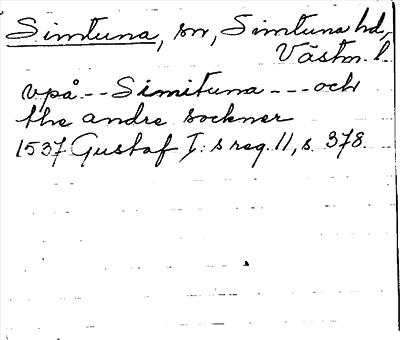 Simtuna, sn, Simtuna hd,
Västm. l.
vpå -- Simituna --- och
the andre sockner
1537 Gustaf I:s reg. 11, s. 378.